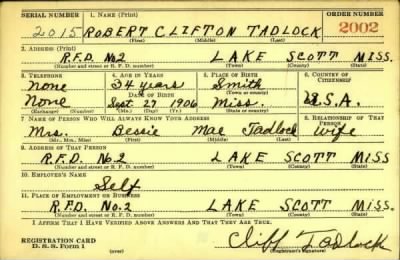 SERIAL NUMBER 1. NAME (Print) ORDER NUMBER
2015 ROBERT CLIFTON TADLOCK 2002
(First) (Middle) (Last)
2. ADDRESS (Print)
R.F.D. No2 LAKE SCOTT MISS.
(Number and street or R. F. D. number) (Town) (County) (State)
3. TELEPHONE 4. AGE IN YEARS 5. PLACE OF BIRTH 6. COUNTRY OF CITIZENSHIP
None 34 years Smith
DATE OF BIRTH
None Sept. 27 1906 Miss. U.S.A.
(Exchange) (Number) (Mo.) (Day) (Yr.) (State or country)
7. NAME OF PERSON WHO WILL ALWAYS KNOW YOUR ADDRESS 8. RELATIONSHIP OF THAT PERSON
Mrs. Bessie Mae Tadlock Wife
(Mr., Mrs., Miss) (First) (Middle) (Last)
9. ADDRESS OF THAT PERSON
R.F.D. No.2 LAKE SCOTT MISS
(Number and street or R. F. D. number) (Town) (County) (State)
10. EMPLOYER'S NAME
Self
11. PLACE OF EMPLOYMENT OR BUSINESS
R.F.D. No.2 LAKE SCOTT MISS.
(Number and street or R. F. D. number) (Town) (County) (State)
I AFFIRM THAT I HAVE VERIFIED ABOVE ANSWERS AND THAT THEY ARE TRUE.
REGISTRATION CARD Cliff Tadlock
D. S. S. Form 1 (over) (Registrant's signature)